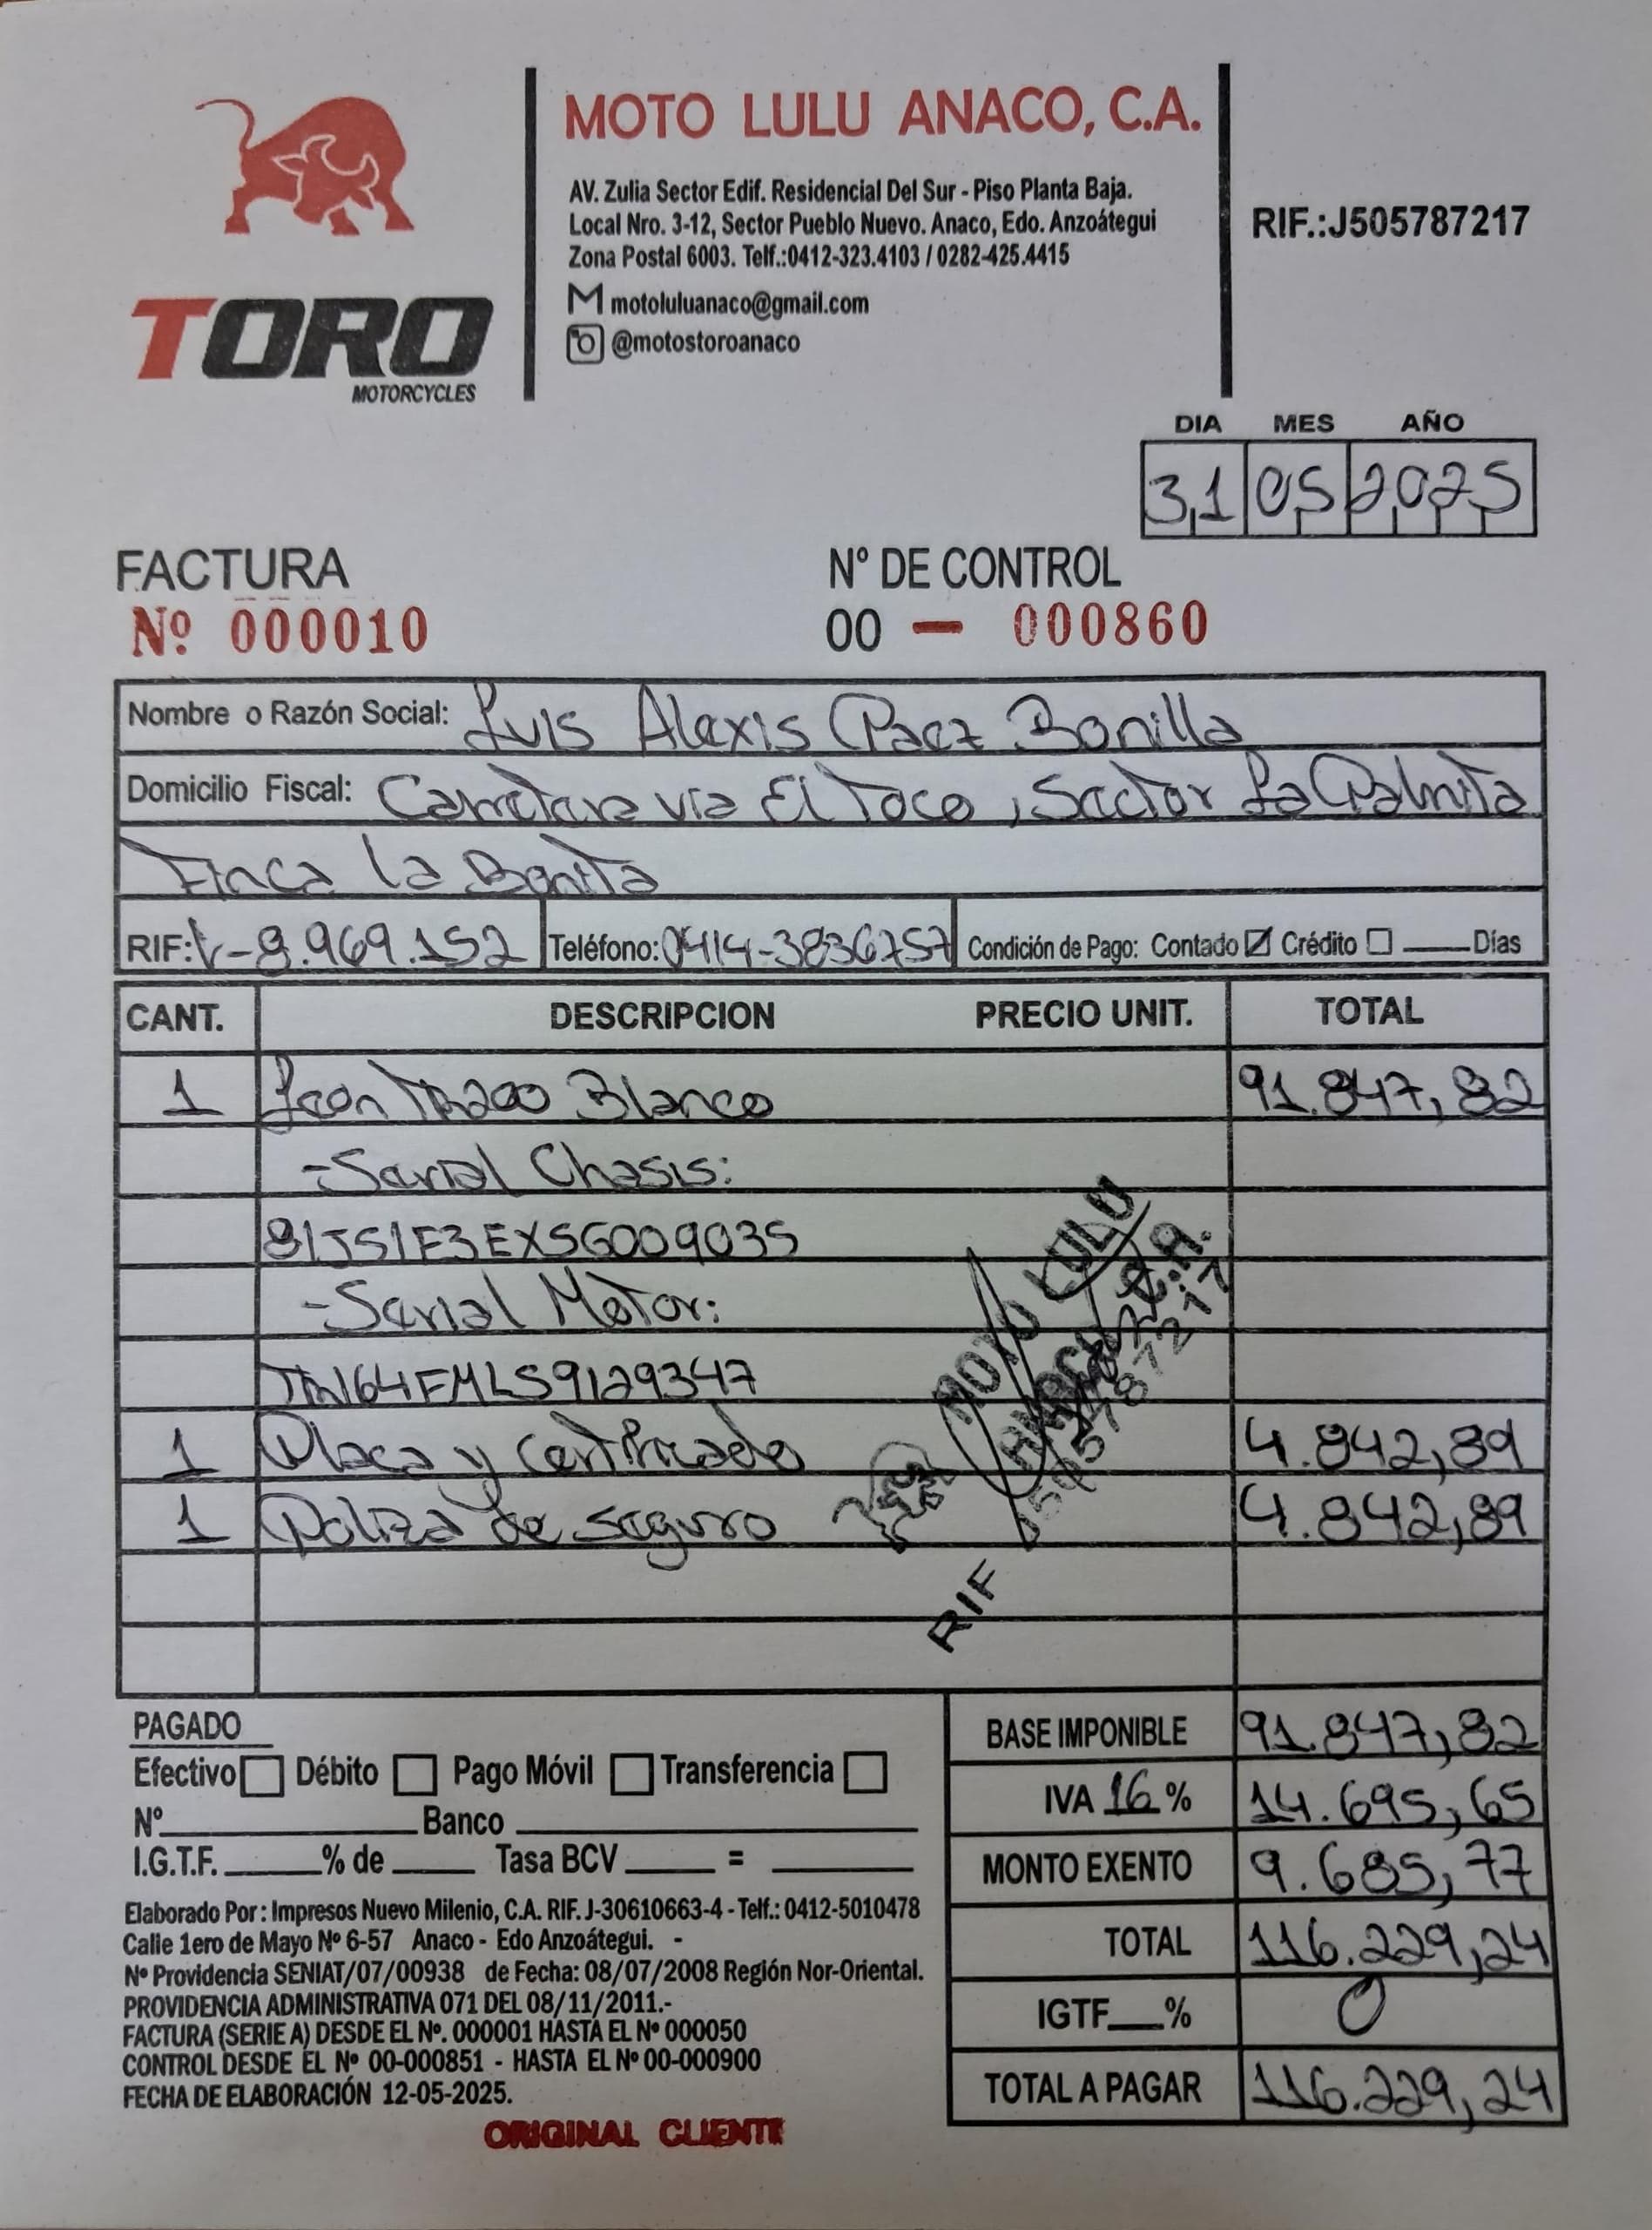 MOTO LULU ANACO, C.A.
AV. Zulia Sector Edif. Residencial Del Sur - Piso Planta Baja.
Local Nro. 3-12, Sector Pueblo Nuevo. Anaco, Edo. Anzoátegui
Zona Postal 6003. Telf.:0412-323.4103 / 0282-425.4415
motoluluanaco@gmail.com
@motostoroanaco
RIF.:J505787217
TORO
MOTORCYCLES
DIA MES AÑO
31 05 2025
FACTURA
Nº 000010
N° DE CONTROL
00 - 000860
Nombre o Razón Social: Luis Alexis Paez Bonilla
Domicilio Fiscal: Carretera via El Toco, Sector La Palmita
Finca La Bonita
RIF: V-8.969.152 Teléfono: 0414-3836757 Condición de Pago: Contado ☑ Crédito ☐ ____ Días
CANT. DESCRIPCION PRECIO UNIT. TOTAL
1 Leon TR200 Blanco 91.847,82
- Serial Chasis:
81JS1F3EXSG009035
- Serial Motor:
TR164FMLS9129347
1 Placa y Certificado 4.842,89
1 Poliza de seguro 4.842,89
MOTO LULU
ANACO, C.A.
RIF J505787217
PAGADO
Efectivo ☐ Débito ☐ Pago Móvil ☐ Transferencia ☐
N°____ Banco ____
I.G.T.F. ____% de ____ Tasa BCV ____ = ____
BASE IMPONIBLE 91.847,82
IVA 16 % 14.695,65
MONTO EXENTO 9.685,77
TOTAL 116.229,24
IGTF__% 0
TOTAL A PAGAR 116.229,24
Elaborado Por : Impresos Nuevo Milenio, C.A. RIF. J-30610663-4 - Telf.: 0412-5010478
Calle 1ero de Mayo Nº 6-57 Anaco - Edo Anzoátegui. -
Nº Providencia SENIAT/07/00938 de Fecha: 08/07/2008 Región Nor-Oriental.
PROVIDENCIA ADMINISTRATIVA 071 DEL 08/11/2011.-
FACTURA (SERIE A) DESDE EL Nº. 000001 HASTA EL Nº 000050
CONTROL DESDE EL Nº 00-000851 - HASTA EL Nº 00-000900
FECHA DE ELABORACIÓN 12-05-2025.
ORIGINAL CLIENTE